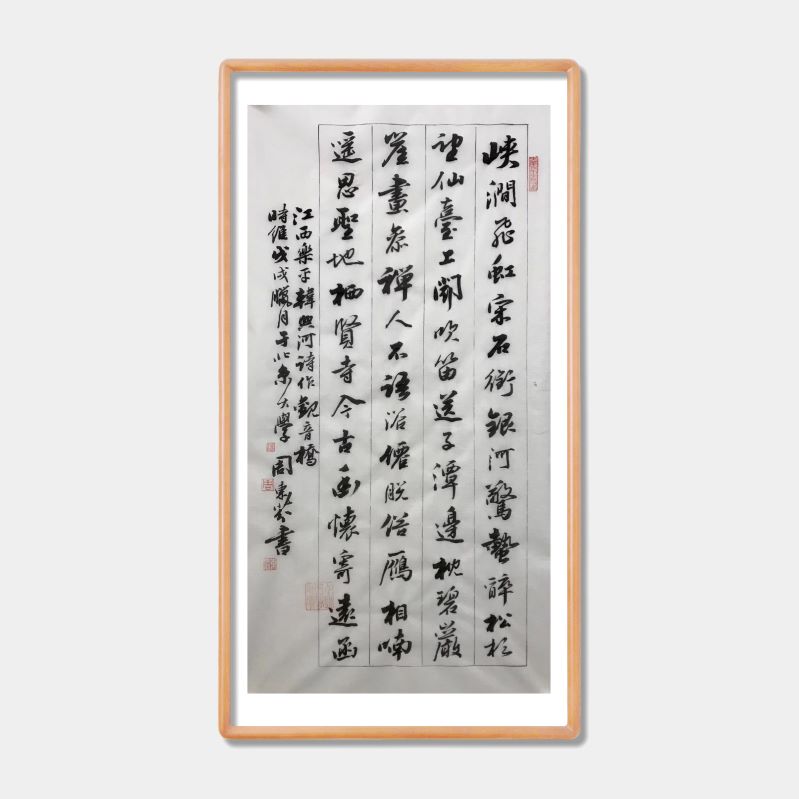 峽澗飛虹宋石銜銀河驚蟄醉松杉
望仙臺上聞吹笛送子潭邊枕碧巖
崖畫參禪人不語浴僊脫俗雁相喃
遥思聖地栖賢寺今古幽懷寄遠函
江西樂平韓興河詩作觀音橋
時維戊戌臘月于北京大學 周東芬書